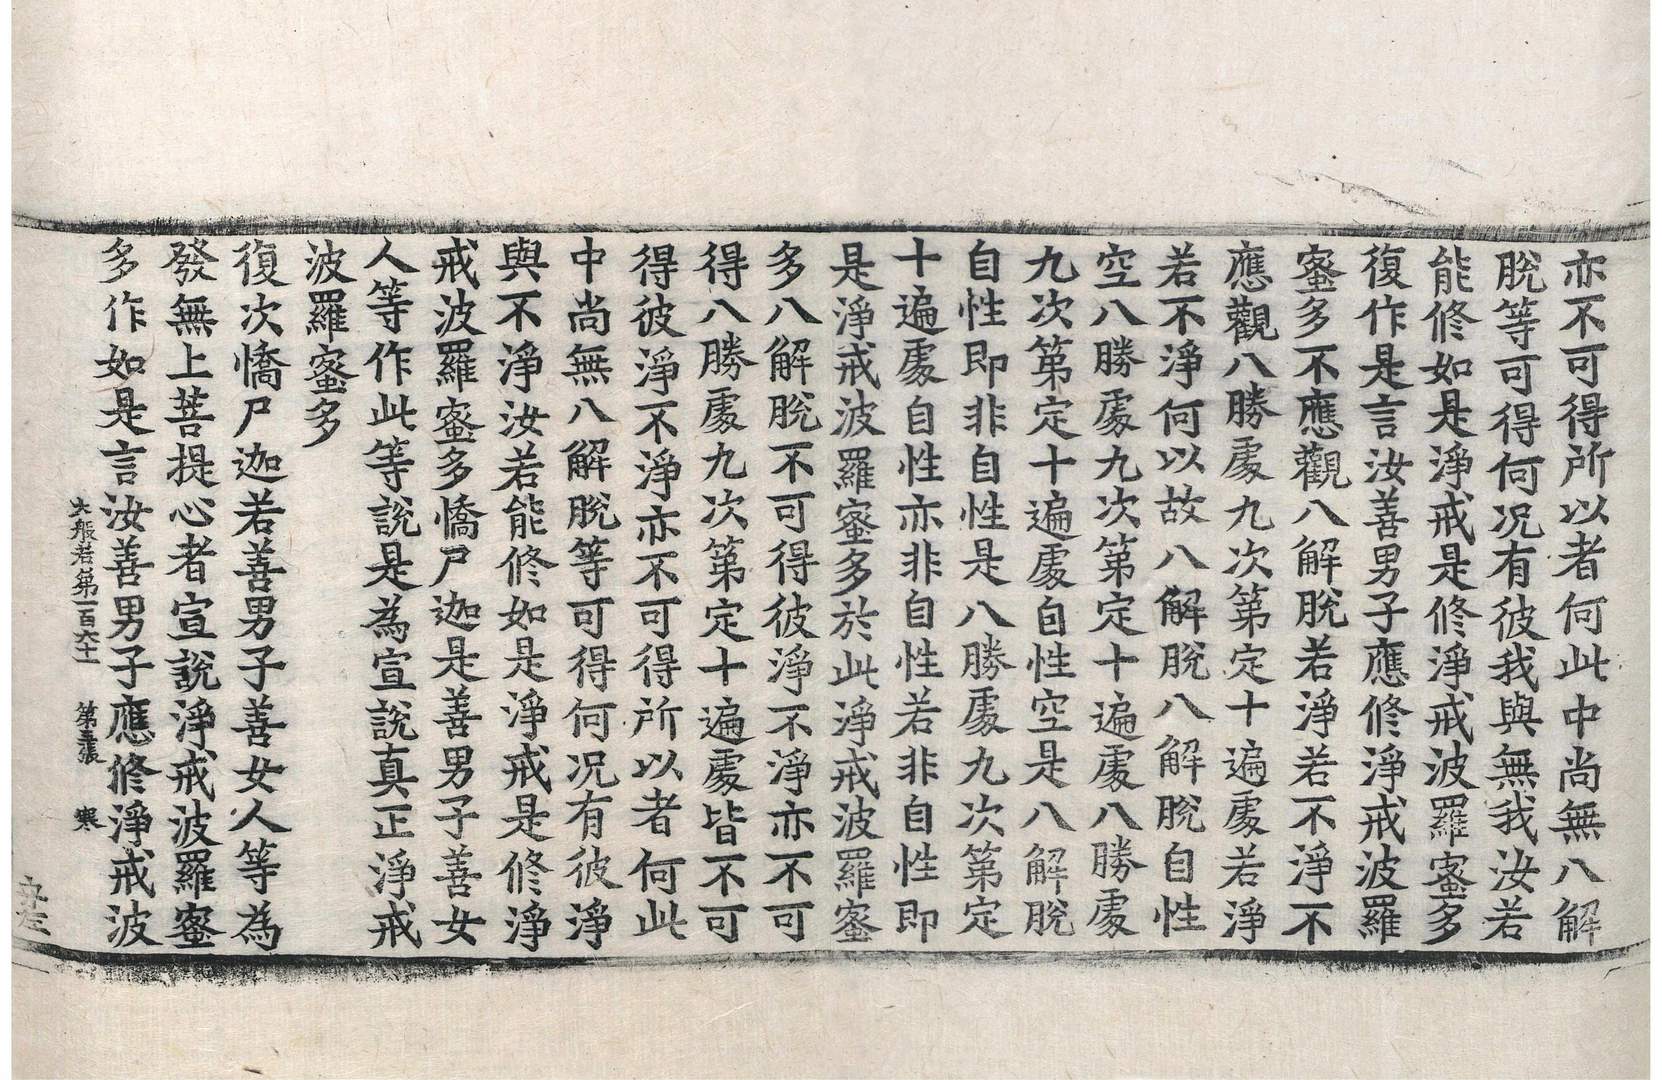 亦不可得所以者何此中尚無八解
脫等可得何况有彼我與無我汝若
能修如是淨戒是修淨戒波羅蜜多
復作是言汝善男子應修淨戒波羅
蜜多不應觀八解脫若淨若不淨不
應觀八勝處九次第定十遍處若淨
若不淨何以故八解脫八解脫自性
空八勝處九次第定十遍處八勝處
九次第定十遍處自性空是八解脫
自性即非自性是八勝處九次第定
十遍處自性亦非自性若非自性即
是淨戒波羅蜜多於此淨戒波羅蜜
多八解脫不可得彼淨不淨亦不可
得八勝處九次第定十遍處皆不可
得彼淨不淨亦不可得所以者何此
中尚無八解脫等可得何况有彼淨
與不淨汝若能修如是淨戒是修淨
戒波羅蜜多憍尸迦是善男子善女
人等作此等說是為宣說真正淨戒
波羅蜜多
復次憍尸迦若善男子善女人等為
發無上菩提心者宣說淨戒波羅蜜
多作如是言汝善男子應修淨戒波
大般若第一百六十一 第五張 寒